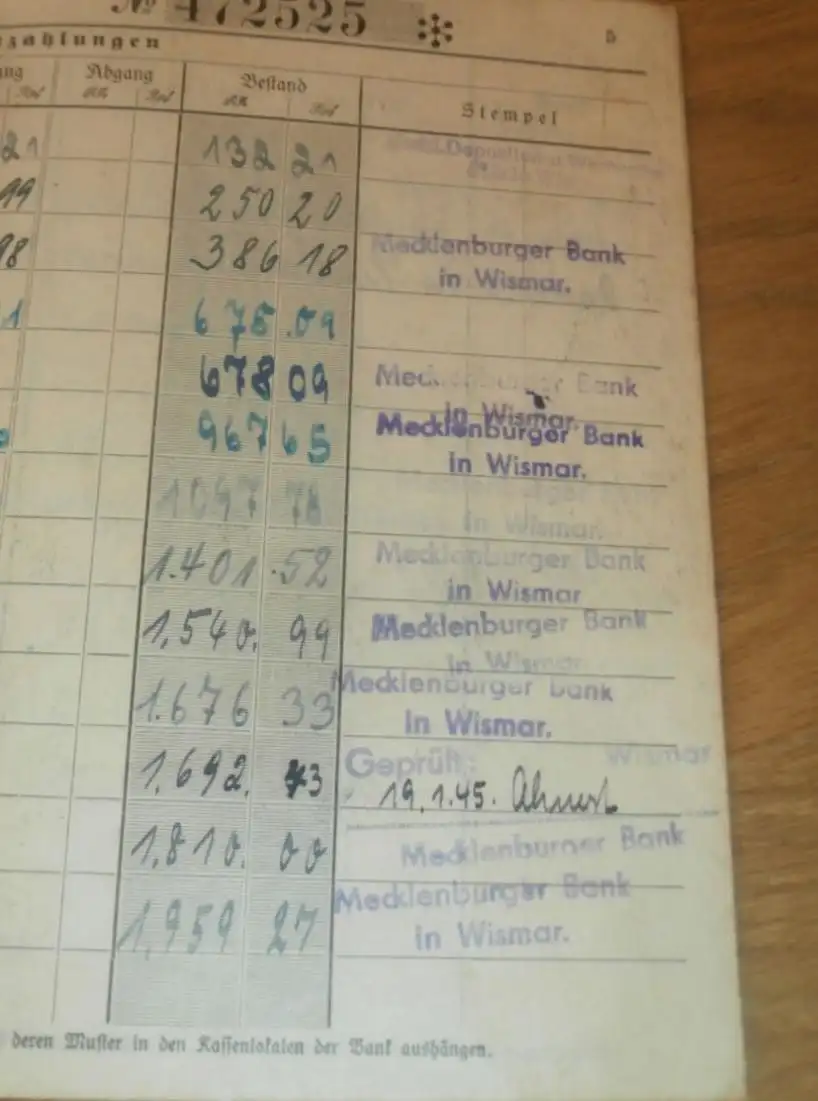 № 472525 5
zahlungen
Abgang Bestand
RM Rpf RM Rpf Stempel
21 132 21
99 250 20
98 386 18 Mecklenburger Bank
in Wismar.
1 675.09
678 09 Mecklenburger Bank
in Wismar.
967 65 Mecklenburger Bank
in Wismar.
1097 78
in Wismar.
1.401.52 Mecklenburger Bank
in Wismar
1.540. 99 Mecklenburger Bank
in Wismar
1.676 33 Mecklenburger Bank
in Wismar.
Geprüft: Wismar
1.692. 43 19.1.45.
1.810. 00 Mecklenburger Bank
1.959 27 Mecklenburger Bank
in Wismar.
deren Muster in den Kassenlokalen der Bank aushängen.